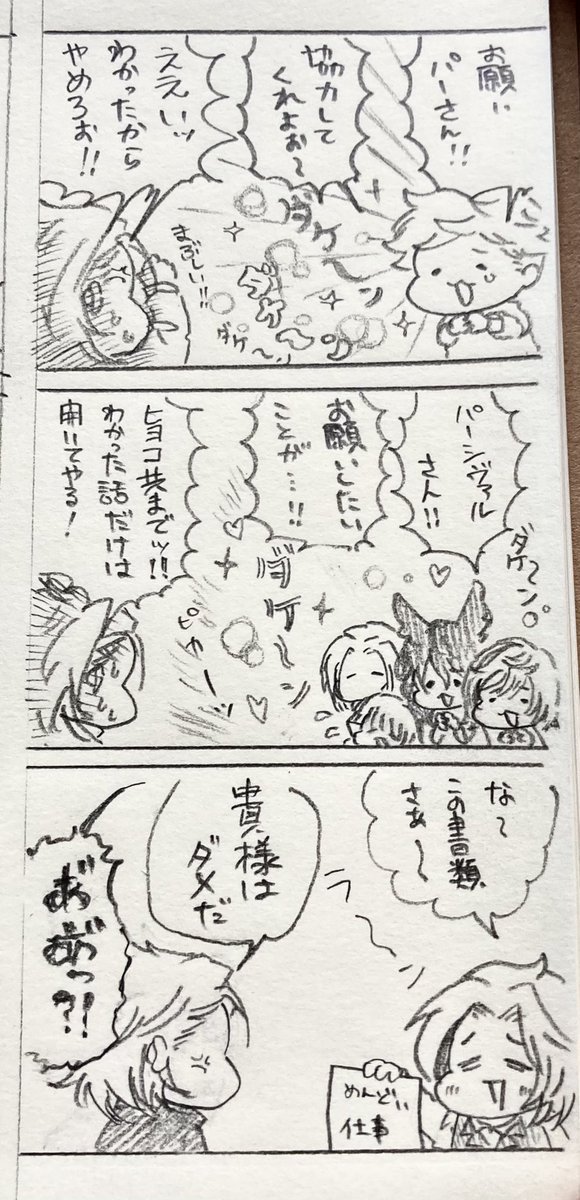 お願い
パーさん!!
協力して
くれよぉ〜
ええいッ
わかったから
やめろぉ!!
ダケ〜ン
まぶしい!!
ダケ〜ン
ダケ〜ン
パーシヴァル
さん!!
お願いしたい
ことが…!!
ヒヨコ共までッ!!
わかった話だけは
聞いてやる!
ダケ〜ン
ダケ〜ン
ピャーッ
な〜
この書類
さぁ〜
貴様は
ダメだ
あ゛あ゛っ?!
めんどい
仕事